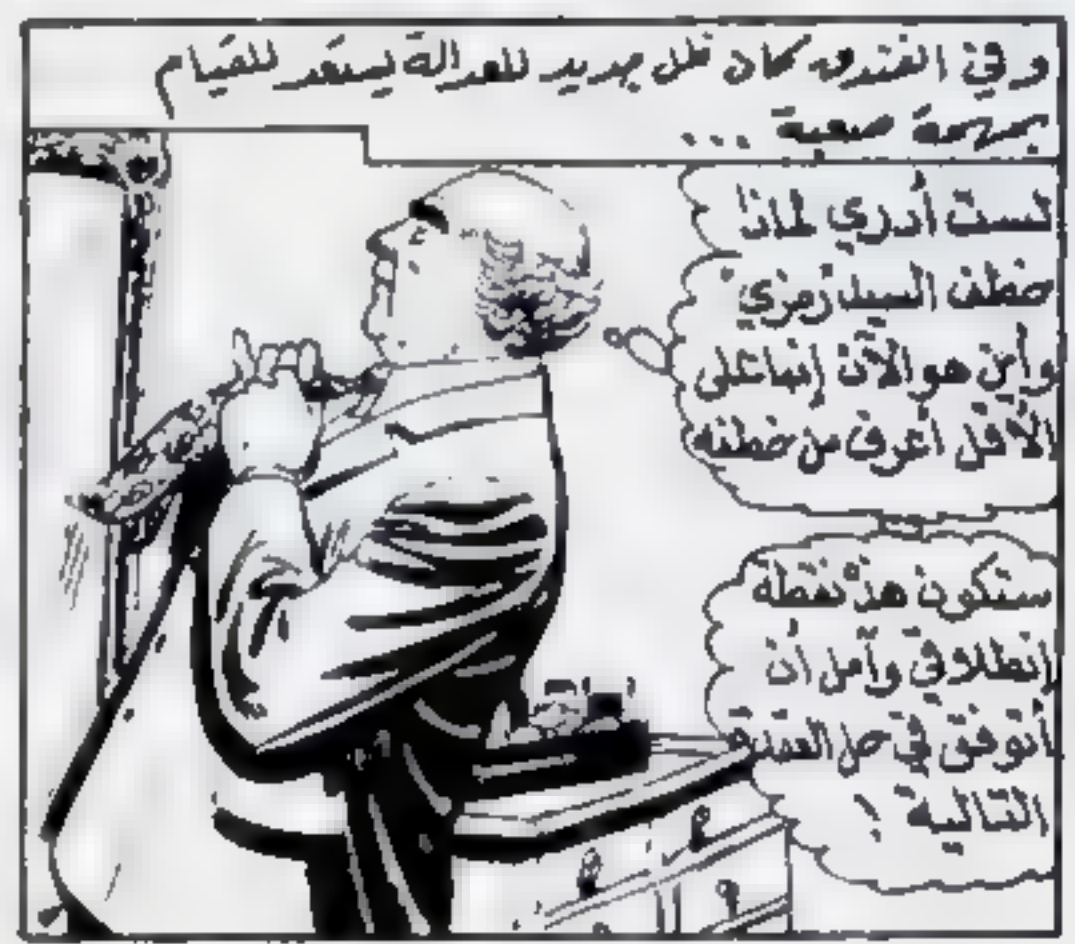 وفي الفندق كان ظل جديد للعدالة يستعد للقيام
بمهمة صعبة ...
لست أدري لماذا
خطف السيد رمزي
وأين هو الآن إنما على
الأقل أعرف من خطفه
ستكون هذه نقطة
انطلاقي وآمل أن
أتوفق في حل العقدة
التالية !